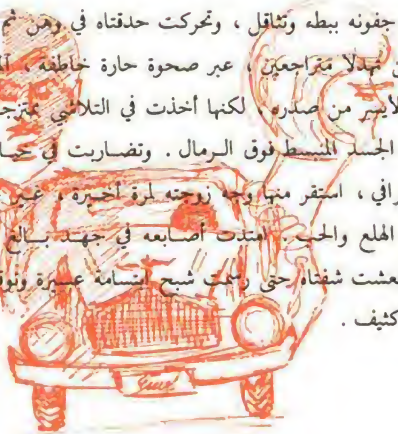 جفونه ببطء وتثاقل ، وتحركت حدقتاه في وهن ثم
متراجعين ، عبر صحوة حارة خاطفة ،
الأيسر من صدره . لكنها أخذت في التلاشي
الجسد المنبسط فوق الرمال . وتضاربت في
استقر منها وجه زوجته لمرة أخيرة ، عبر
الهلع والحب . امتدت أصابعه في جهد بالغ
شفتاه حتى رسمت شبح ابتسامة عسيرة
كثيف .